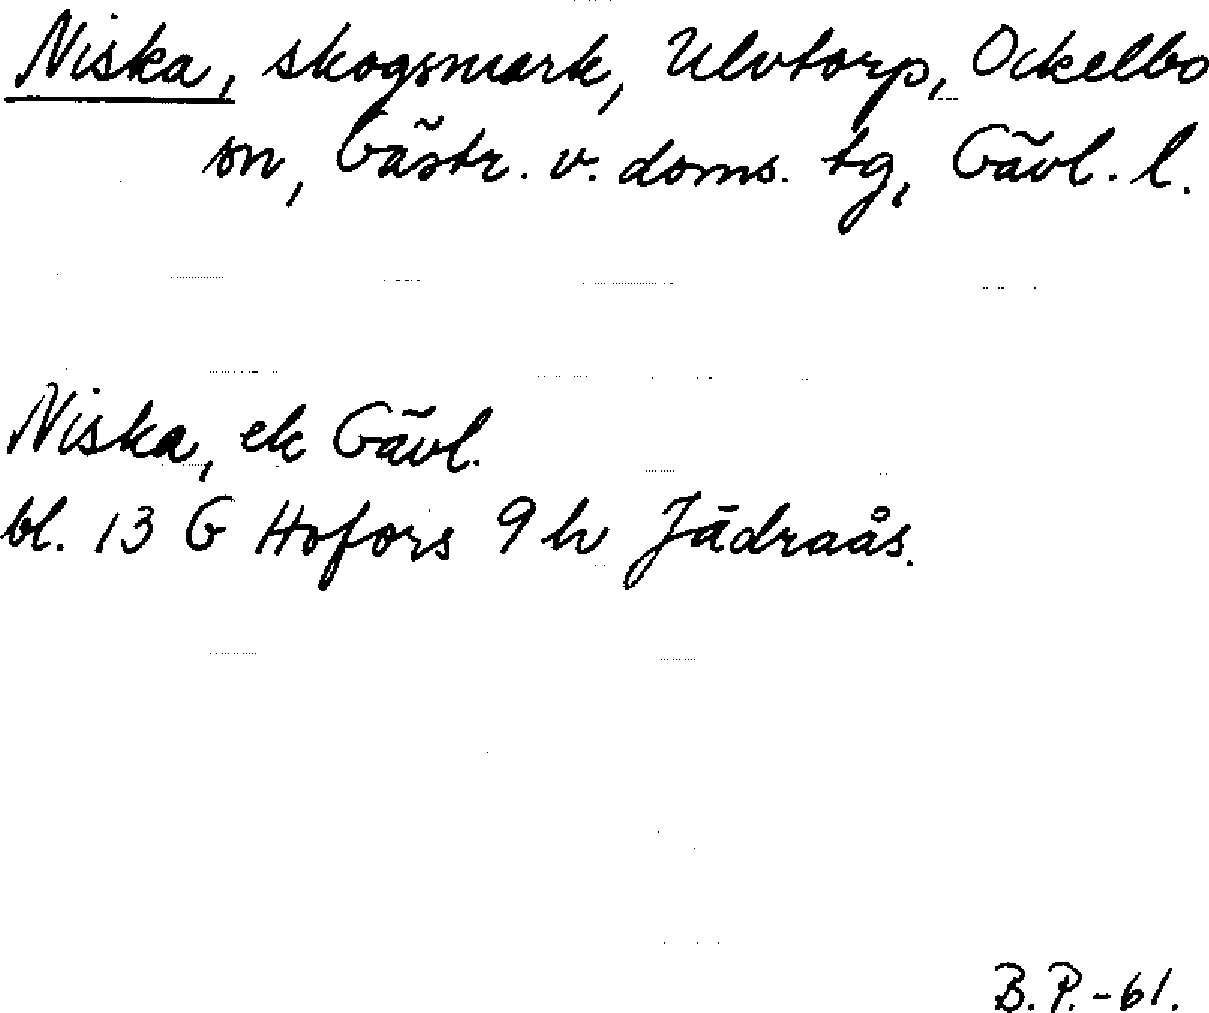 Niska, skogsmark, Ulvtorp, Ockelbo
sn, Gästr. v. doms. tg, Gävl. l.
Niska, ek Gävl.
bl. 13 G Hofors 9 h Jädraås.
B.P.-61.